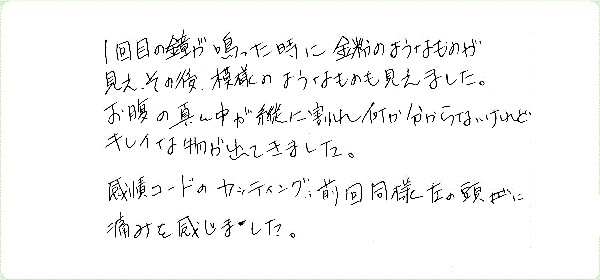 1回目の鐘が鳴った時に金粉のようなものが
見え、その後、模様のようなものも見えました。
お腹の真ん中が縦に割れ何か分からないけれど
キレイな物が出てきました。
感情コードのカッティング:前回同様左の頭に
痛みを感じました。